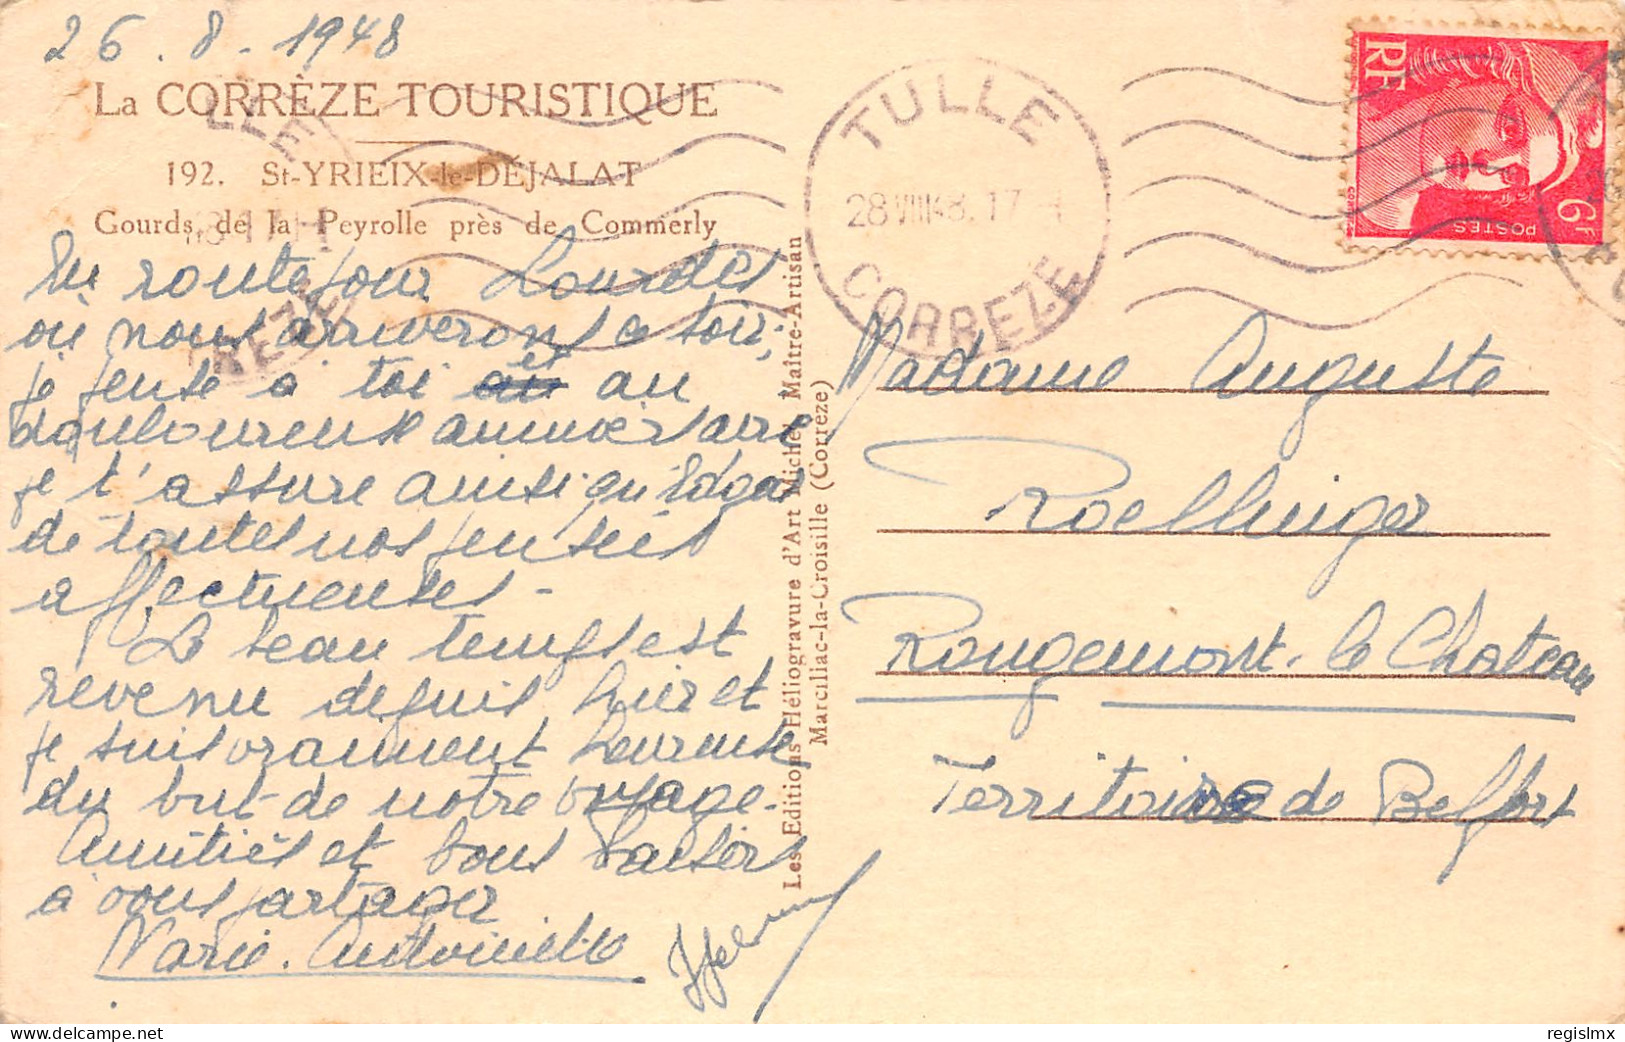 26.8.1948
La CORRÈZE TOURISTIQUE
192. St-YRIEIX-le-DÉJALAT
Gourds de la Peyrolle près de Commerly
En route pour Lourdes
où nous arriverons ce soir,
je pense à toi et au
douloureuse anniversaire
je t'assure ainsi qu'Edgar
de toutes nos pensées
affectueuses -
Le beau temps est
revenu depuis hier et
je suis vraiment heureuse
du but de notre voyage.
Amitiés et bons baisers
à vous partager
Marie-Antoinette
Les Editions Héliogravure d'Art Michel Maître-Artisan
Marcillac-la-Croisille (Corrèze)
TULLE
28 VIII 48. 17 H
CORREZE
RF
POSTES
6F
Madame Auguste
Roellinger
Rougemont-le-Chateau
Territoire de Belfort
regislmx